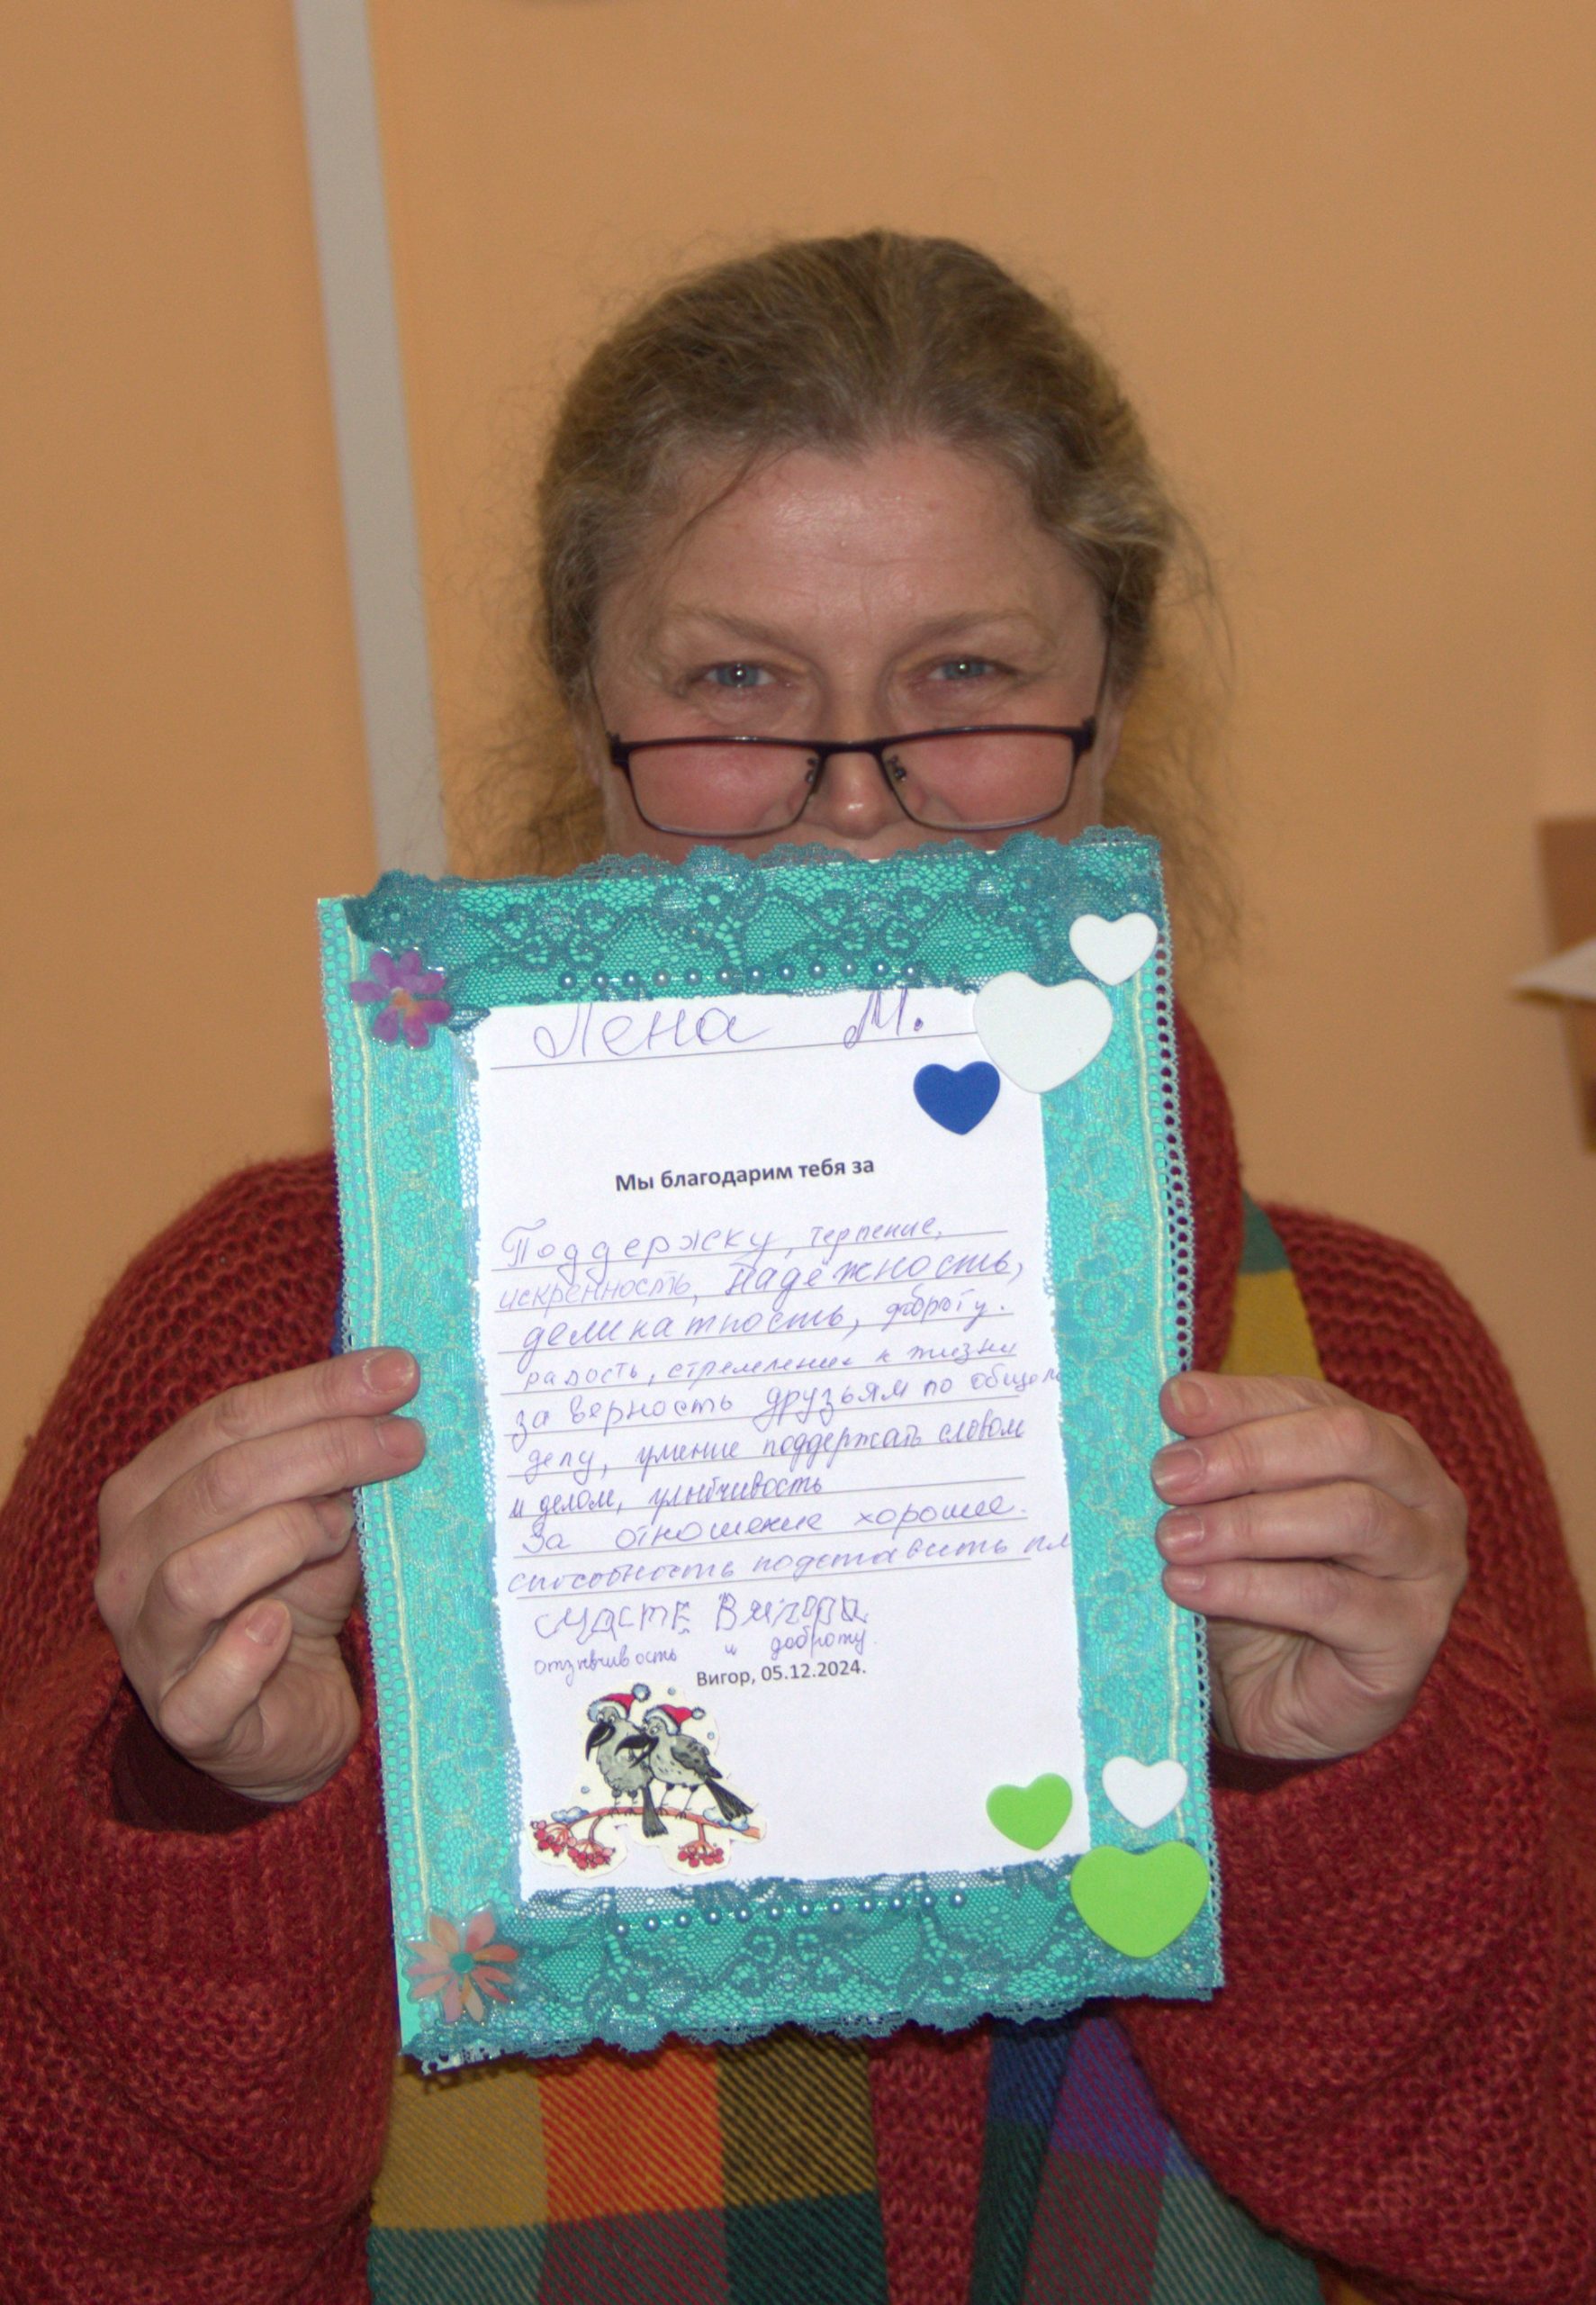 Лена М.
Мы благодарим тебя за
Поддержку, терпение,
искренность, надёжность,
деликатность, доброту.
радость, стремление к жизни
за верность друзьям по общем
делу, умение поддержать словом
и делом, улыбчивость
За отношение хорошее.
способность подставить пл
счастье Вигора
отзывчивость и доброту.
Вигор, 05.12.2024.